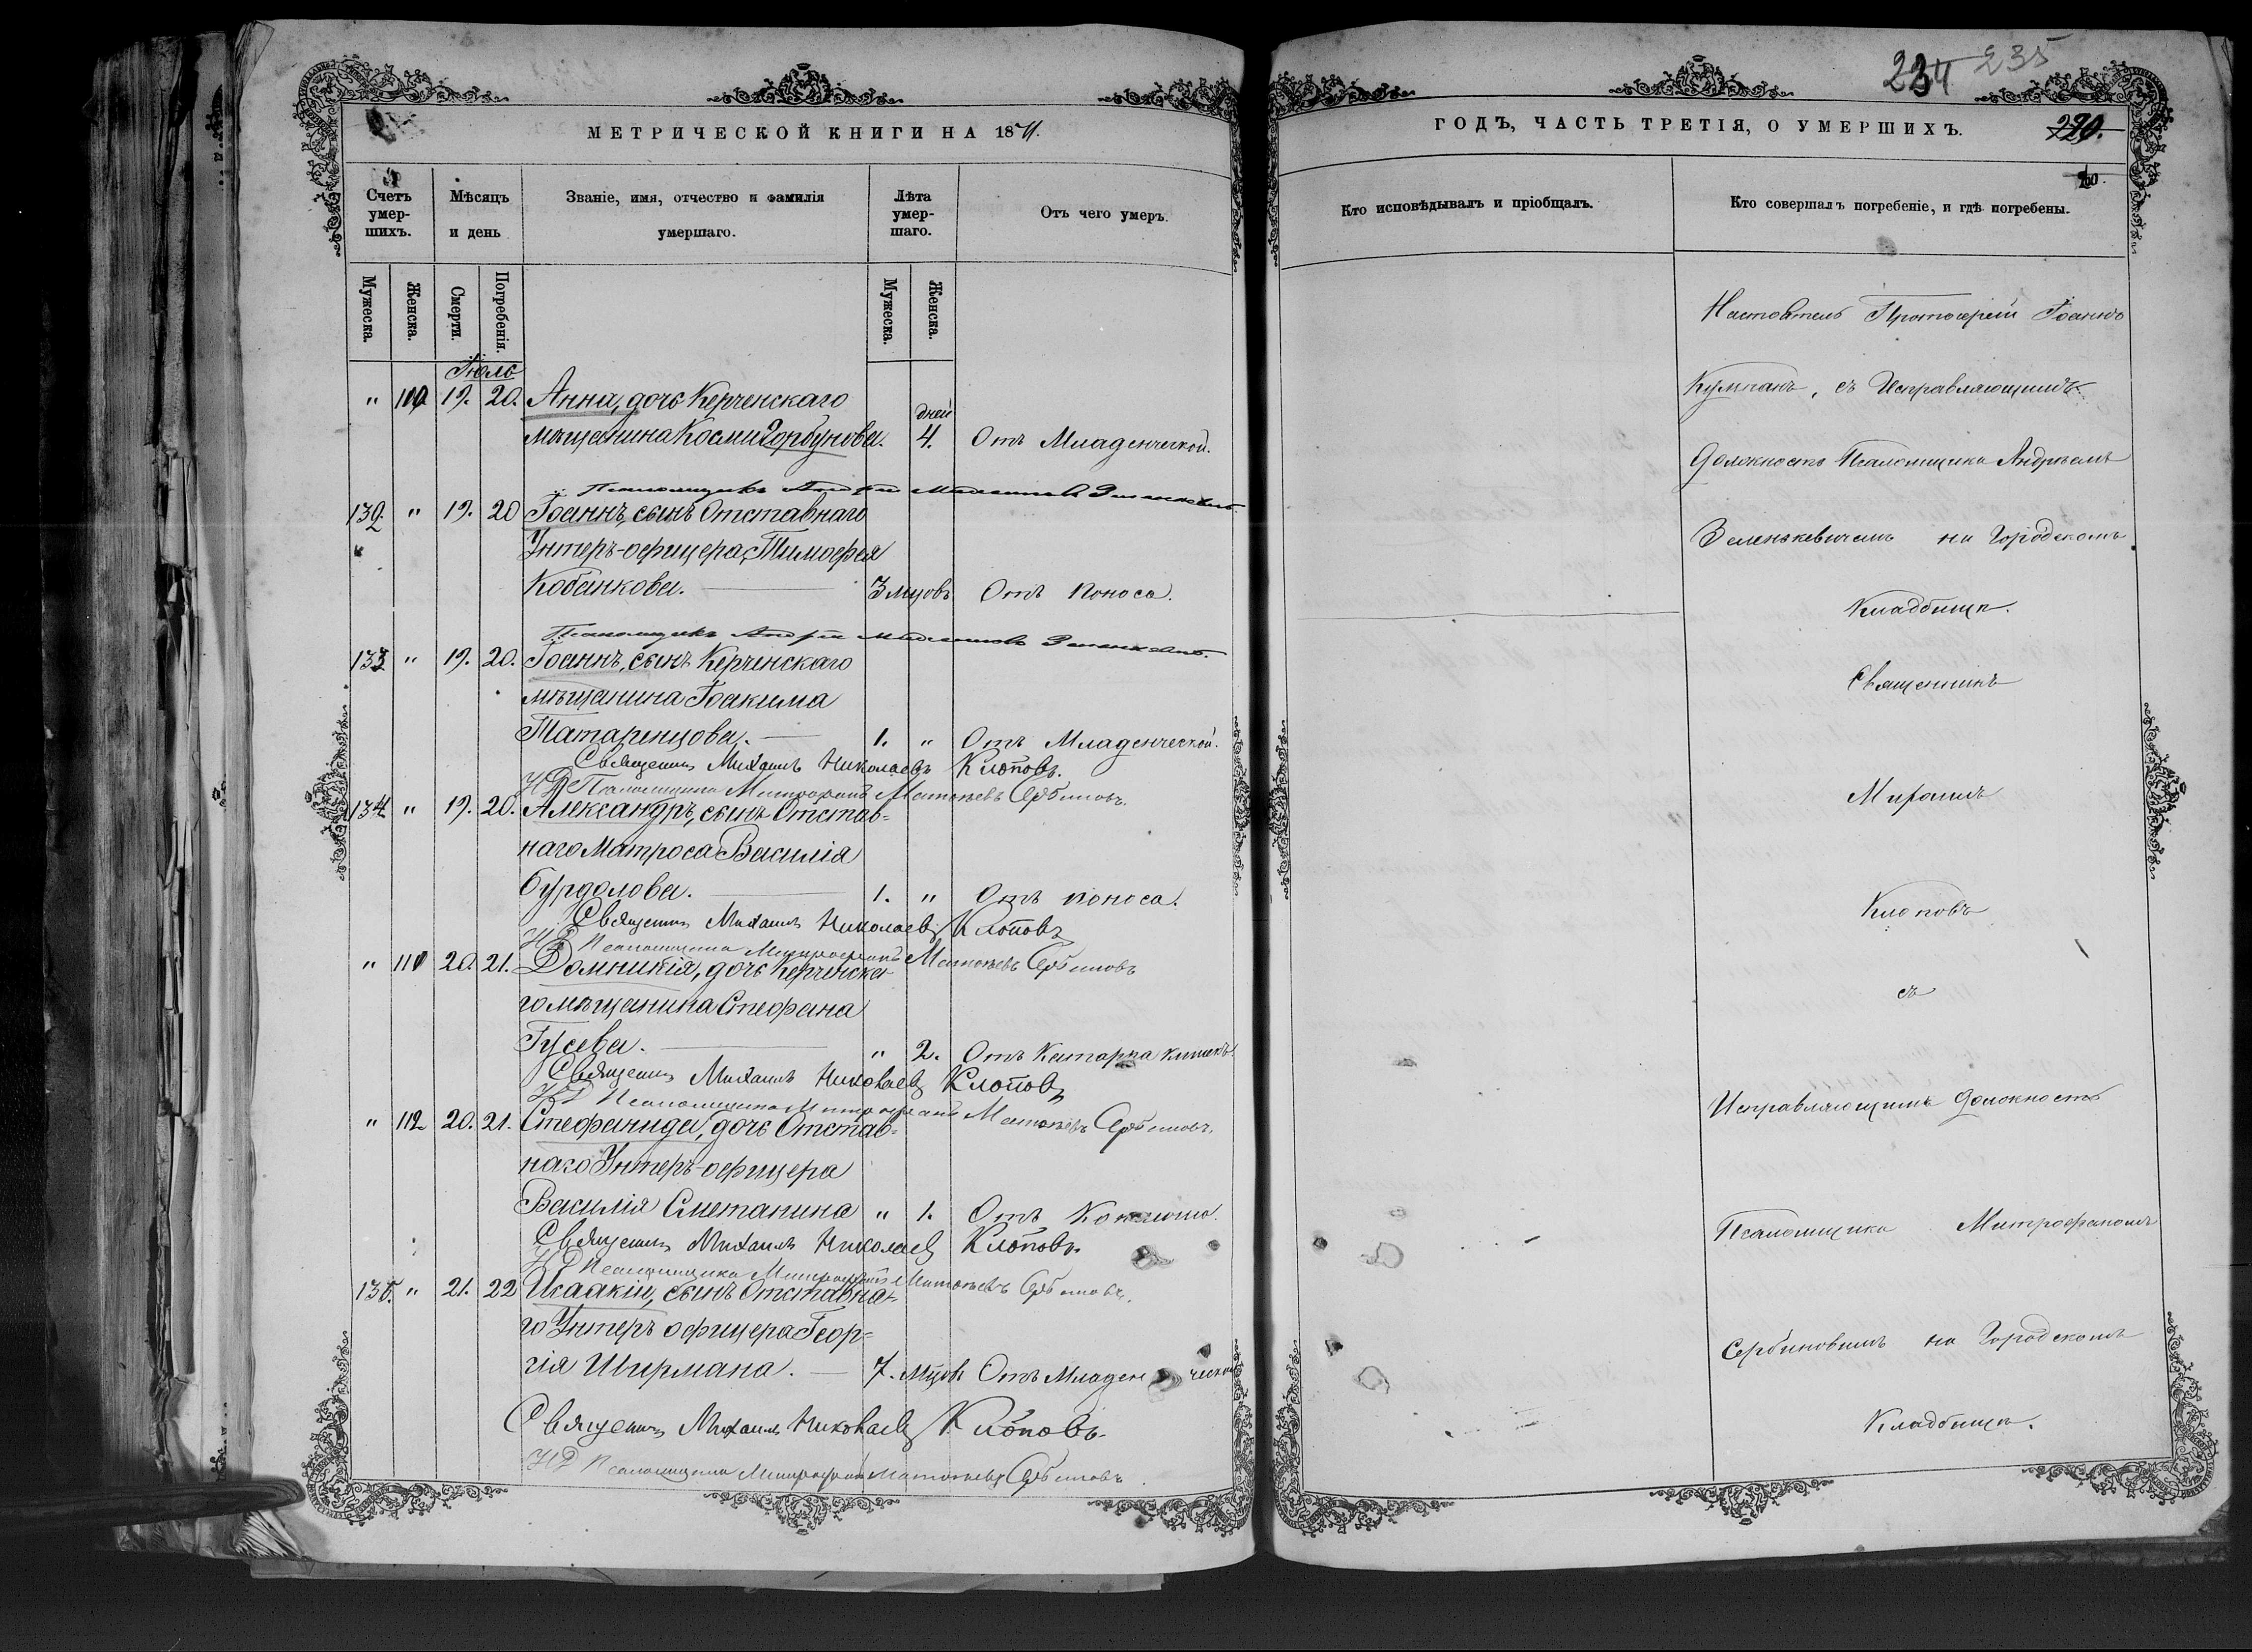 МЕТРИЧЕСКОЙ КНИГИ НА 1871.
Счетъ умер-шихъ.
Мѣсяцъ и день
Званіе, имя, отчество и фамилія умершаго.
Лѣта умер-шаго.
Отъ чего умеръ.
Мужеска. Женска. Смерти. Погребенія. Мужеска. Женска.
Іюль
" 110 19. 20. Анна, дочь Керченскаго
дней
мѣщанина Космы Горбунова. 4. Отъ Младенческой.
Псаломщикъ Андрей
132. " 19. 20 Іоаннъ, сынъ Отставнаго
Унтеръ-офицера, Тимофея
Кобанкова. 3 мцовъ Отъ поноса.
Псаломщикъ Андрей
133 " 19. 20. Іоаннъ, сынъ Керченскаго
мѣщанина Іоакима
Татаринцова. 1. " Отъ Младенческой.
Священникъ Михаилъ Николаевъ Клоповъ.
И Д Псаломщика Митрофанъ Матвѣевъ Сербиновъ.
134 " 19. 20. Александръ, сынъ Отстав=
наго Матроса Василія
Бурдолова. 1. " Отъ поноса.
Священникъ Михаилъ Николаевъ Клоповъ
И Д Псаломщика Митрофанъ Матвѣевъ Сербиновъ
" 111 20. 21. Домникія, дочь Керченска-
го мѣщанина Стефана
Гусева. " 2. Отъ Катарра кишекъ.
Священникъ Михаилъ Николаевъ Клоповъ
И Д Псаломщика Митрофанъ Матвѣевъ Сербиновъ.
" 112 20. 21. Стефанида, дочь Отстав=
наго Унтеръ-офицера
Василія Сметанина " 1. Отъ Коклюша.
Священникъ Михаилъ Николаевъ Клоповъ.
И Д Псаломщика Митрофанъ Матвѣевъ Сербиновъ.
135. " 21. 22 Исаакій, сынъ Отставна-
го Унтеръ офицера Геор=
гія Ширмана. 7. мцовъ Отъ Младенческой
Священникъ Михаилъ Николаевъ Клоповъ.
И Д Псаломщика Митрофанъ Матвѣевъ Сербиновъ.
234 235
ГОДЪ, ЧАСТЬ ТРЕТІЯ, О УМЕРШИХЪ.
220.
Кто исповѣдывалъ и пріобщалъ.
Кто совершалъ погребеніе, и гдѣ погребены.
Настоятель Протоіерей Іоаннъ
Кумпанъ, съ Исправляющимъ
должность Псаломщика Андреемъ
Зеленкевичемъ на Городскомъ
Кладбищѣ.
Священникъ
Михаилъ
Клоповъ
съ
Исправляющимъ должность
Псаломщика Митрофаномъ
Сербиновымъ на Городскомъ
Кладбищѣ.